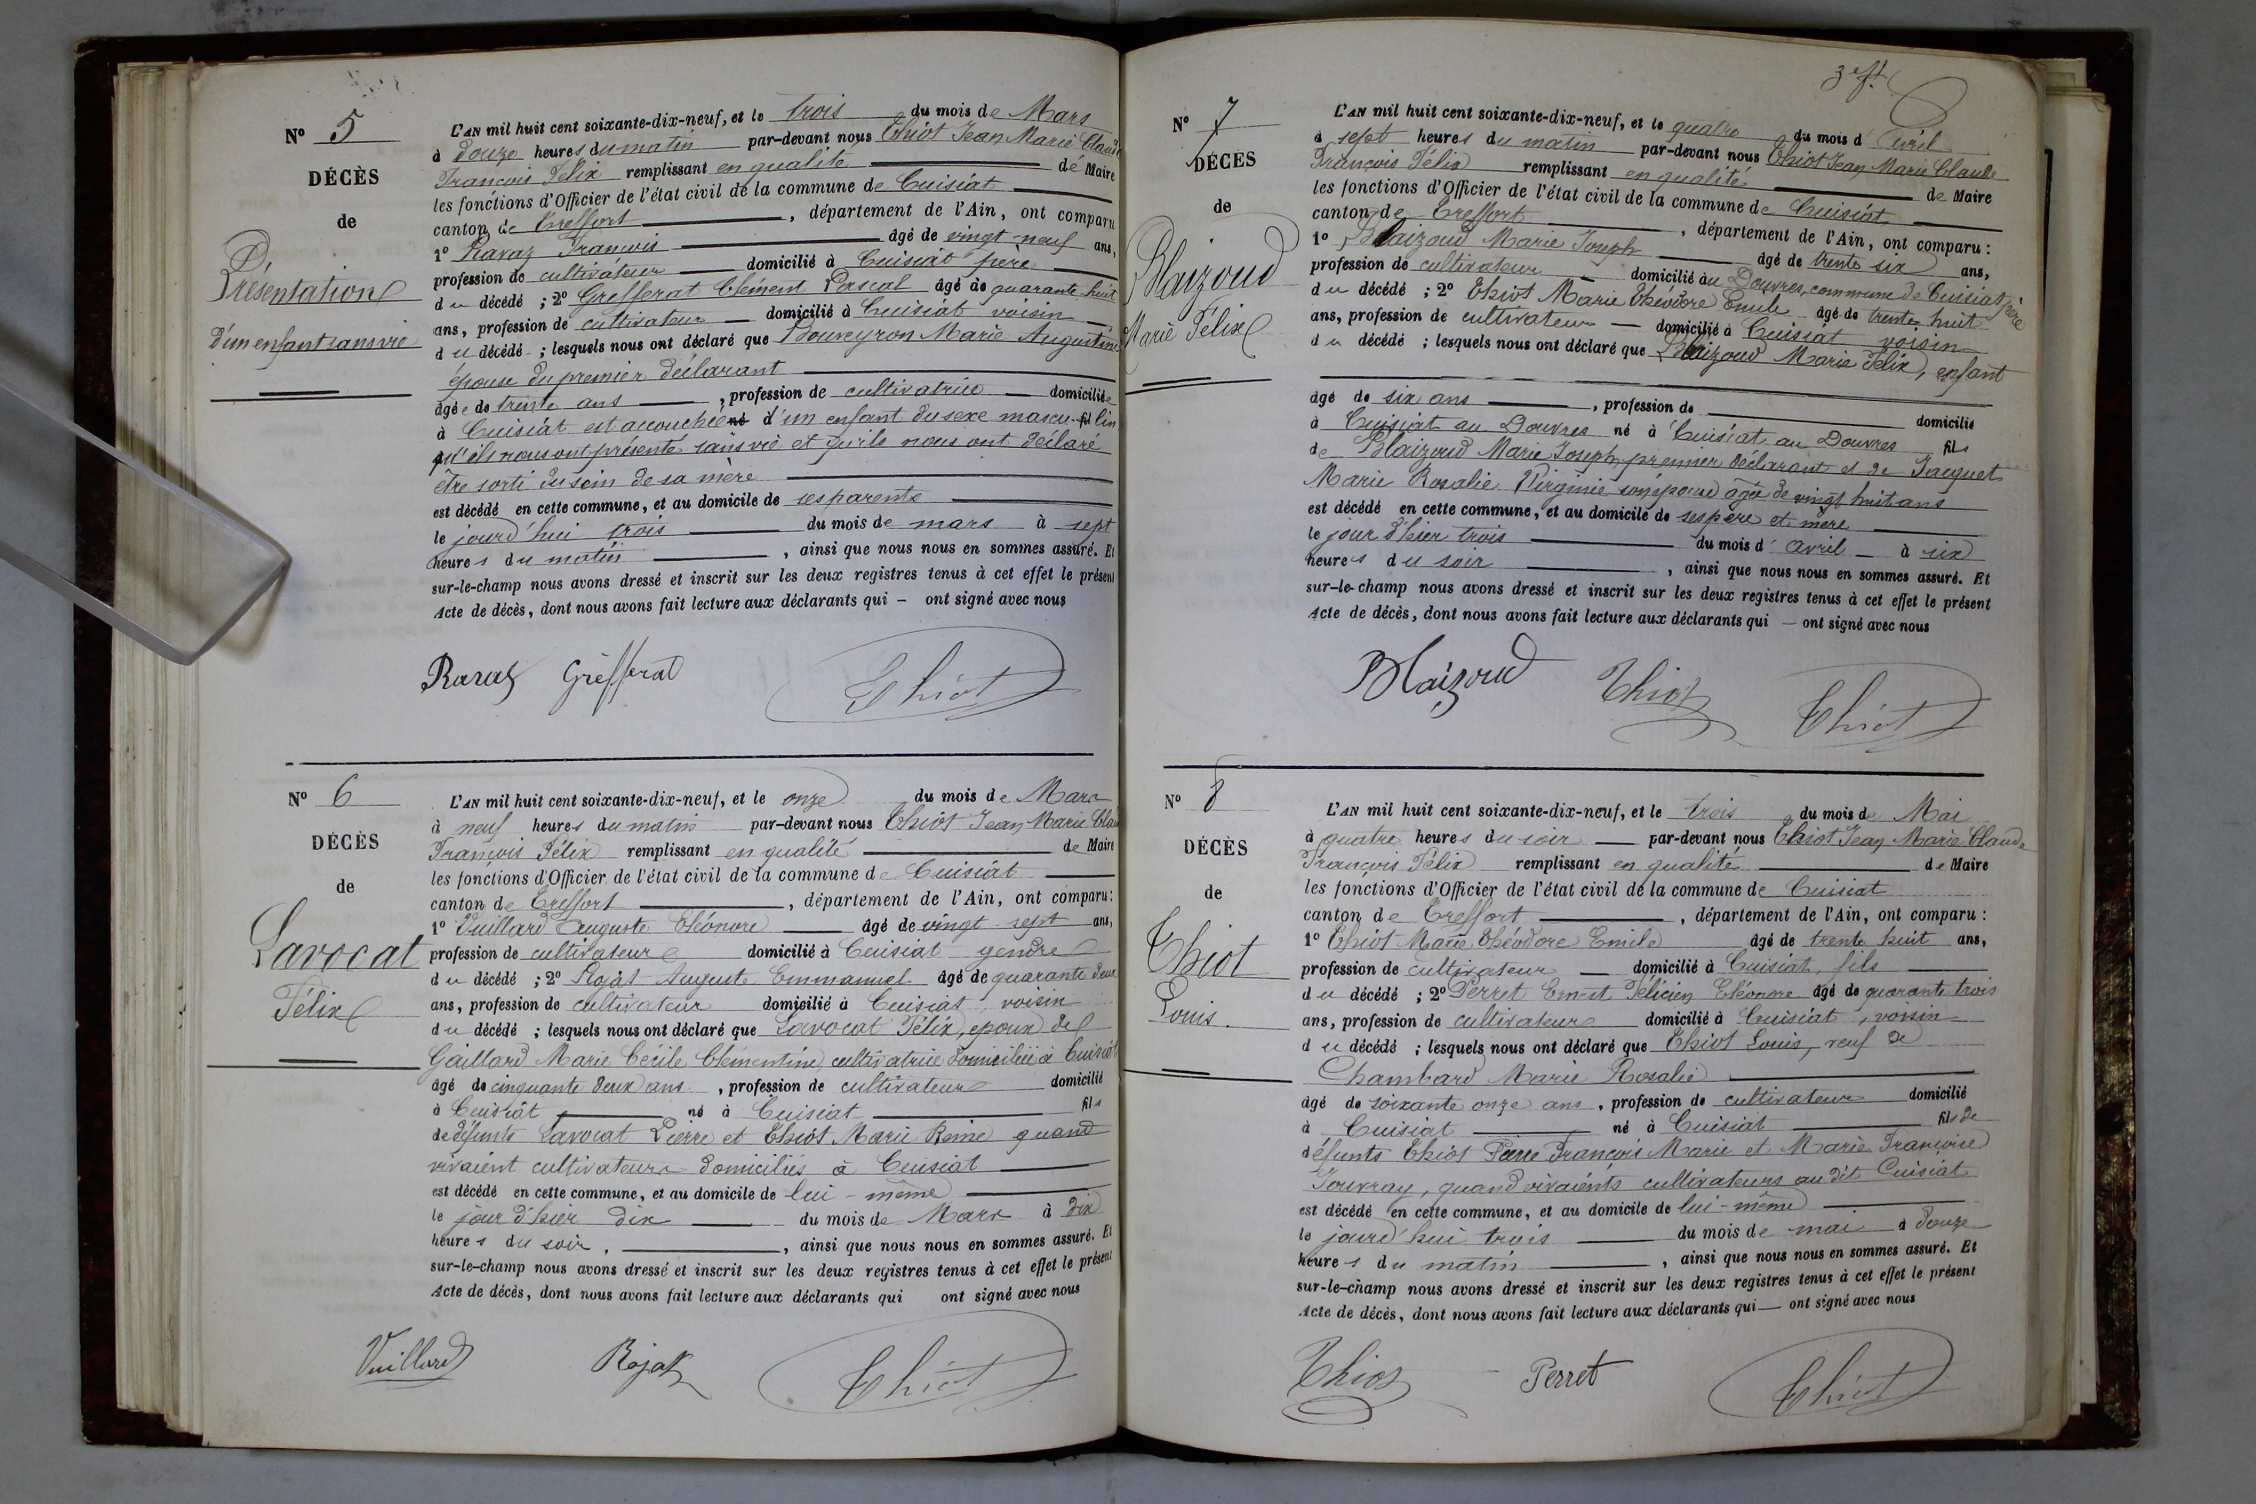 N° 5
DÉCÈS
de
Présentation
d'un enfant sans vie
L'AN mil huit cent soixante-dix-neuf, et le trois du mois de Mars
à douze heures du matin par-devant nous Thiot Jean Marie Claude
François Félix remplissant en qualité de Maire
les fonctions d'Officier de l'état civil de la commune de Cuisiat
canton de Treffort, département de l'Ain, ont comparu
1° Ravaz François âgé de vingt-neuf ans,
profession de cultivateur domicilié à Cuisiat père
du décédé ; 2° Grefferat Clément Pascal âgé de quarante huit
ans, profession de cultivateur domicilié à Cuisiat voisin
du décédé ; lesquels nous ont déclaré que Bouveyron Marie Augustine
épouse du premier déclarant
âgée de trente ans, profession de cultivatrice domiciliée
à Cuisiat est accouchée né d'un enfant du sexe mascu- fil lin
qu'ils nous ont présenté sans vie et qu'ils nous ont déclaré
être sorti du sein de sa mère
est décédé en cette commune, et au domicile de ses parents
le jourd'hui trois du mois de mars à sept
heures du matin, ainsi que nous nous en sommes assuré. Et
sur-le-champ nous avons dressé et inscrit sur les deux registres tenus à cet effet le présent
Acte de décès, dont nous avons fait lecture aux déclarants qui – ont signé avec nous
Ravaz Grefferat Thiot
N° 6
DÉCÈS
de
Lavocat
Félix
L'AN mil huit cent soixante-dix-neuf, et le onze du mois de Mars
à neuf heures du matin par-devant nous Thiot Jean Marie Clau
François Félix remplissant en qualité de Maire
les fonctions d'Officier de l'état civil de la commune de Cuisiat
canton de Treffort, département de l'Ain, ont comparu :
1° Vuillard Auguste Eléonore âgé de vingt-sept ans,
profession de cultivateur domicilié à Cuisiat gendre
du décédé ; 2° Rojat Auguste Emmanuel âgé de quarante deux
ans, profession de cultivateur domicilié à Cuisiat, voisin
du décédé ; lesquels nous ont déclaré que Lavocat Félix, époux de
Gaillard Marie Cécile Clémentine, cultivatrice domiciliée à Cuisiat
âgé de cinquante deux ans, profession de cultivateur domicilié
à Cuisiat né à Cuisiat fils
de défunts Lavocat Pierre et Thiot Marie Reine quand
vivaient cultivateurs domiciliés à Cuisiat
est décédé en cette commune, et au domicile de lui-même
le jour d'hier dix du mois de Mars à dix
heures du soir, ainsi que nous nous en sommes assuré. Et
sur-le-champ nous avons dressé et inscrit sur les deux registres tenus à cet effet le présent
Acte de décès, dont nous avons fait lecture aux déclarants qui ont signé avec nous
Vuillard Rojat Thiot
3e ft
N° 7
DÉCÈS
de
Blaizoud
Marie Félix
L'AN mil huit cent soixante-dix-neuf, et le quatre du mois d'Avril
à sept heures du matin par-devant nous Thiot Jean Marie Claude
François Félix remplissant en qualité de Maire
les fonctions d'Officier de l'état civil de la commune de Cuisiat
canton de Treffort, département de l'Ain, ont comparu :
1° Blaizoud Marie Joseph âgé de trente six ans,
profession de cultivateur domicilié au Douvres, commune de Cuisiat, père
du décédé ; 2° Thiot Marie Théodore Emile âgé de trente huit
ans, profession de cultivateur domicilié à Cuisiat voisin
du décédé ; lesquels nous ont déclaré que Blaizoud Marie Félix, enfant
âgé de six ans, profession de domicilié
à Cuisiat au Douvres né à Cuisiat au Douvres fils
de Blaizoud Marie Joseph, premier déclarant et de Jacquet
Marie Rosalie Virginie son épouse âgée de vingt huit ans
est décédé en cette commune, et au domicile de ses père et mère
le jour d'hier trois du mois d'avril à six
heures du soir, ainsi que nous nous en sommes assuré. Et
sur-le-champ nous avons dressé et inscrit sur les deux registres tenus à cet effet le présent
Acte de décès, dont nous avons fait lecture aux déclarants qui – ont signé avec nous
Blaizoud Thiot Thiot
N° 8
DÉCÈS
de
Thiot
Louis.
L'AN mil huit cent soixante-dix-neuf, et le trois du mois de Mai
à quatre heures du soir par-devant nous Thiot Jean Marie Claude
François Félix remplissant en qualité de Maire
les fonctions d'Officier de l'état civil de la commune de Cuisiat
canton de Treffort, département de l'Ain, ont comparu :
1° Thiot Marie Théodore Emile âgé de trente huit ans,
profession de cultivateur domicilié à Cuisiat, fils
du décédé ; 2° Perret Ernest Félicien Eléonore âgé de quarante trois
ans, profession de cultivateur domicilié à Cuisiat, voisin
du décédé ; lesquels nous ont déclaré que Thiot Louis, veuf de
Chambard Marie Rosalie
âgé de soixante onze ans, profession de cultivateur domicilié
à Cuisiat né à Cuisiat fils de
défunts Thiot Pierre François Marie et Marie Françoise
Jouvray, quand vivaients cultivateurs au dit Cuisiat
est décédé en cette commune, et au domicile de lui-même
le jourd'hui trois du mois de mai à douze
heures du matin, ainsi que nous nous en sommes assuré. Et
sur-le-champ nous avons dressé et inscrit sur les deux registres tenus à cet effet le présent
Acte de décès, dont nous avons fait lecture aux déclarants qui — ont signé avec nous
Thiot Perret Thiot